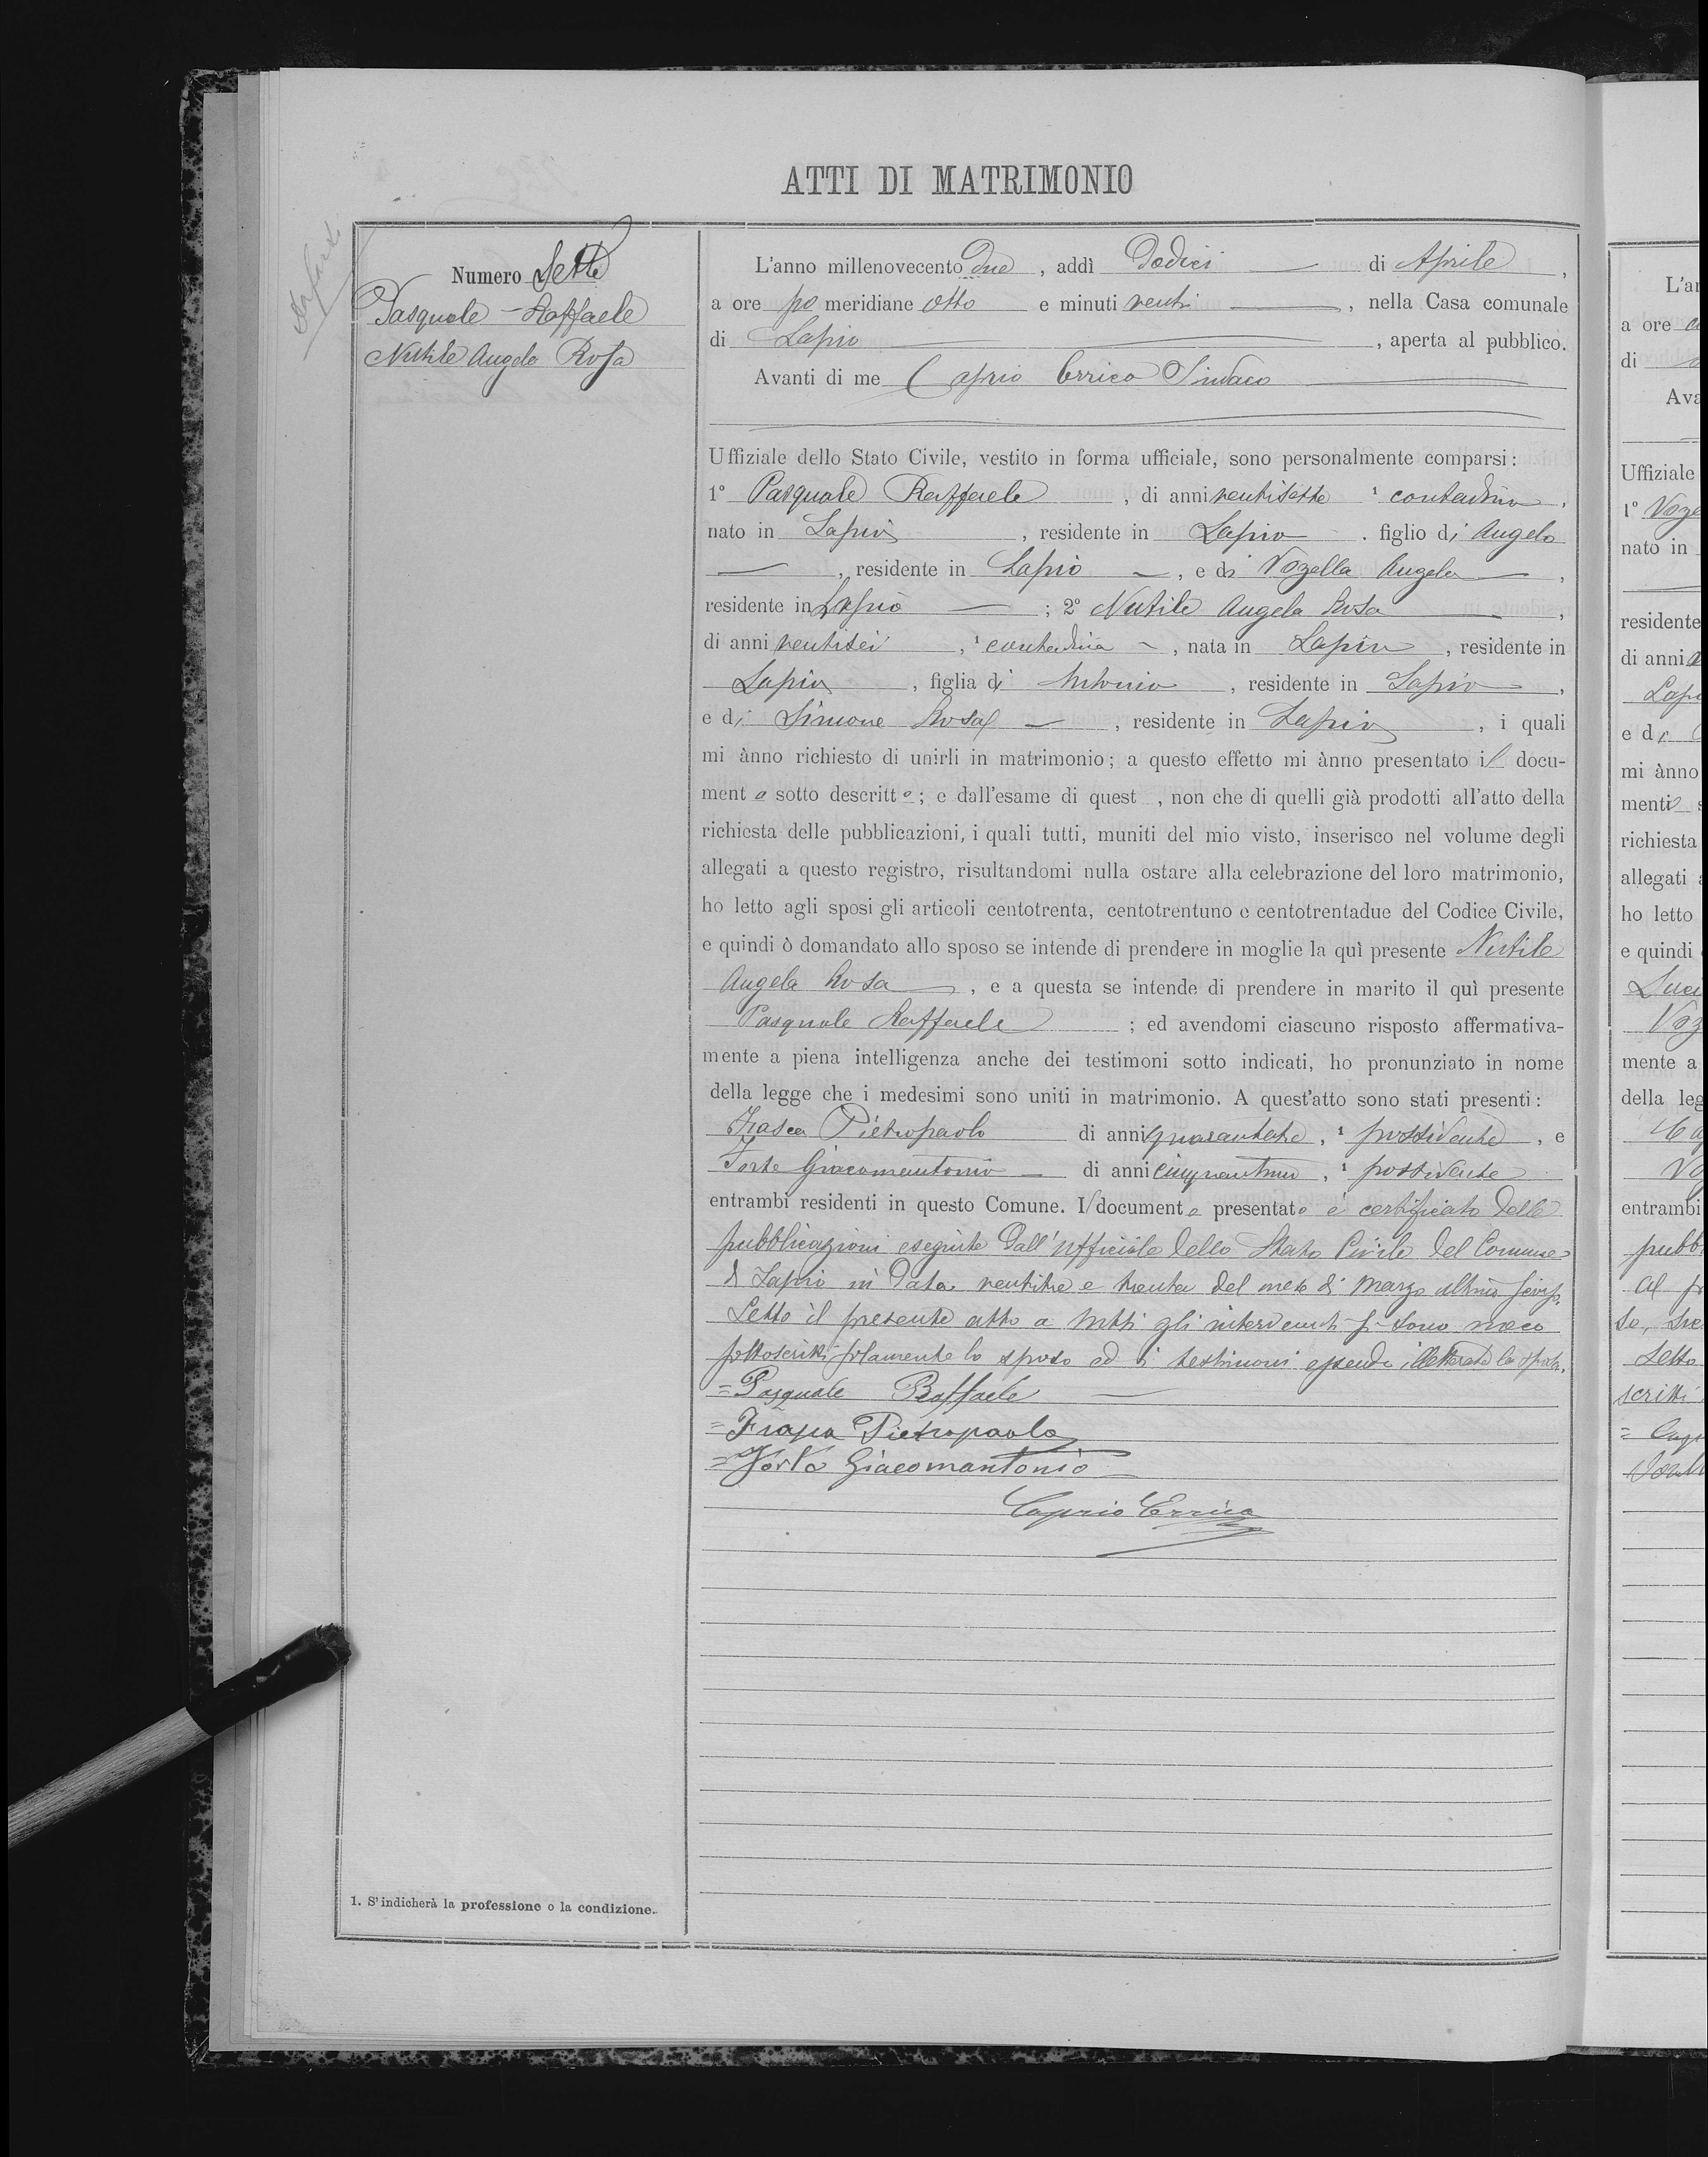 ATTI DI MATRIMONIO
Numero Sette
Pasquale - Raffaele
Nutile Angela Rosa
L'anno millenovecento due, addì Dodici di Aprile,
a ore po meridiane otto e minuti venti, nella Casa comunale
di Lapio, aperta al pubblico.
Avanti di me Caprio Errico Sindaco
Uffiziale dello Stato Civile, vestito in forma ufficiale, sono personalmente comparsi:
1° Pasquale Raffaele, di anni ventisette 1 contadino,
nato in Lapio, residente in Lapio. figlio di Angelo
, residente in Lapio, e di Vozella Angela,
residente in Lapio; 2° Nutile Angela Rosa,
di anni ventisei, 1 contadina, nata in Lapio, residente in
Lapio, figlia di Antonio, residente in Lapio,
e di Simone Rosa, residente in Lapio, i quali
mi ànno richiesto di unirli in matrimonio; a questo effetto mi ànno presentato il docu-
mento sotto descritto; e dall'esame di quest , non che di quelli già prodotti all'atto della
richiesta delle pubblicazioni, i quali tutti, muniti del mio visto, inserisco nel volume degli
allegati a questo registro, risultandomi nulla ostare alla celebrazione del loro matrimonio,
ho letto agli sposi gli articoli centotrenta, centotrentuno e centotrentadue del Codice Civile,
e quindi ò domandato allo sposo se intende di prendere in moglie la quì presente Nutile
Angela Rosa, e a questa se intende di prendere in marito il quì presente
Pasquale Raffaele; ed avendomi ciascuno risposto affermativa-
mente a piena intelligenza anche dei testimoni sotto indicati, ho pronunziato in nome
della legge che i medesimi sono uniti in matrimonio. A quest'atto sono stati presenti:
Frasca Pietropaolo di anni quarantatre, 1 possidente, e
Forte Giacomantonio di anni cinquantuno, 1 possidente
entrambi residenti in questo Comune. Il documento presentato è certificato delle
pubblicazioni eseguite dall'ufficiale dello Stato Civile del Comune
di Lapio in data ventitre e trenta del mese di Marzo ultimo
Letto il presente atto a tutti gli intervenuti si sono meco
sottoscritti solamente lo sposo ed i testimoni essendo illetterata la sposa.
= Pasquale Raffaele
= Frasca Pietropaolo
= Forte Giacomantonio
Caprio Errico
1. S'indicherà la professione o la condizione.
L'a
a ore
di
Ava
Uffiziale
1° Voze
nato in
residente
di anni
Lapi
e di
mi ànno
menti
richiesta
allegati
ho letto
e quindi
Luci
Voz
mente a
della leg
entrambi
pubb
al
Letto
scritti